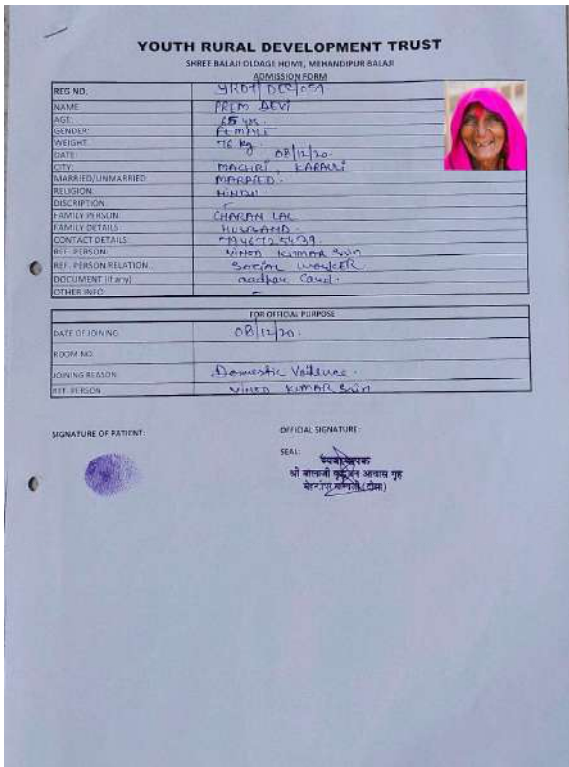 YOUTH RURAL DEVELOPMENT TRUST
SHREE BALAJI OLDAGE HOME, MEHANDIPUR BALAJI
ADMISSION FORM
REG NO. YRDT/DEC/
NAME PREM DEVI
AGE: 65 yrs.
GENDER: Female
WEIGHT 76 kg
DATE: 08/12/20.
CITY: MACHRI, KARAULI
MARRIED/UNMARRIED MARRIED.
RELIGION: HINDU
DISCRIPTION -
FAMILY PERSON CHARAN LAL
FAMILY DETAILS HUSBAND.
CONTACT DETAILS
REF. PERSON VINOD KUMAR
REF. PERSON RELATION SOCIAL WORKER
DOCUMENT (if any) aadhar Card.
OTHER INFO: -
FOR OFFICIAL PURPOSE
DATE OF JOINING 08/12/20.
ROOM NO.
JOINING REASON Domestic Voilence.
REF. PERSON VINOD KUMAR
SIGNATURE OF PATIENT:
OFFICIAL SIGNATURE:
SEAL:
श्री बालाजी आवास गृह
(दौसा)